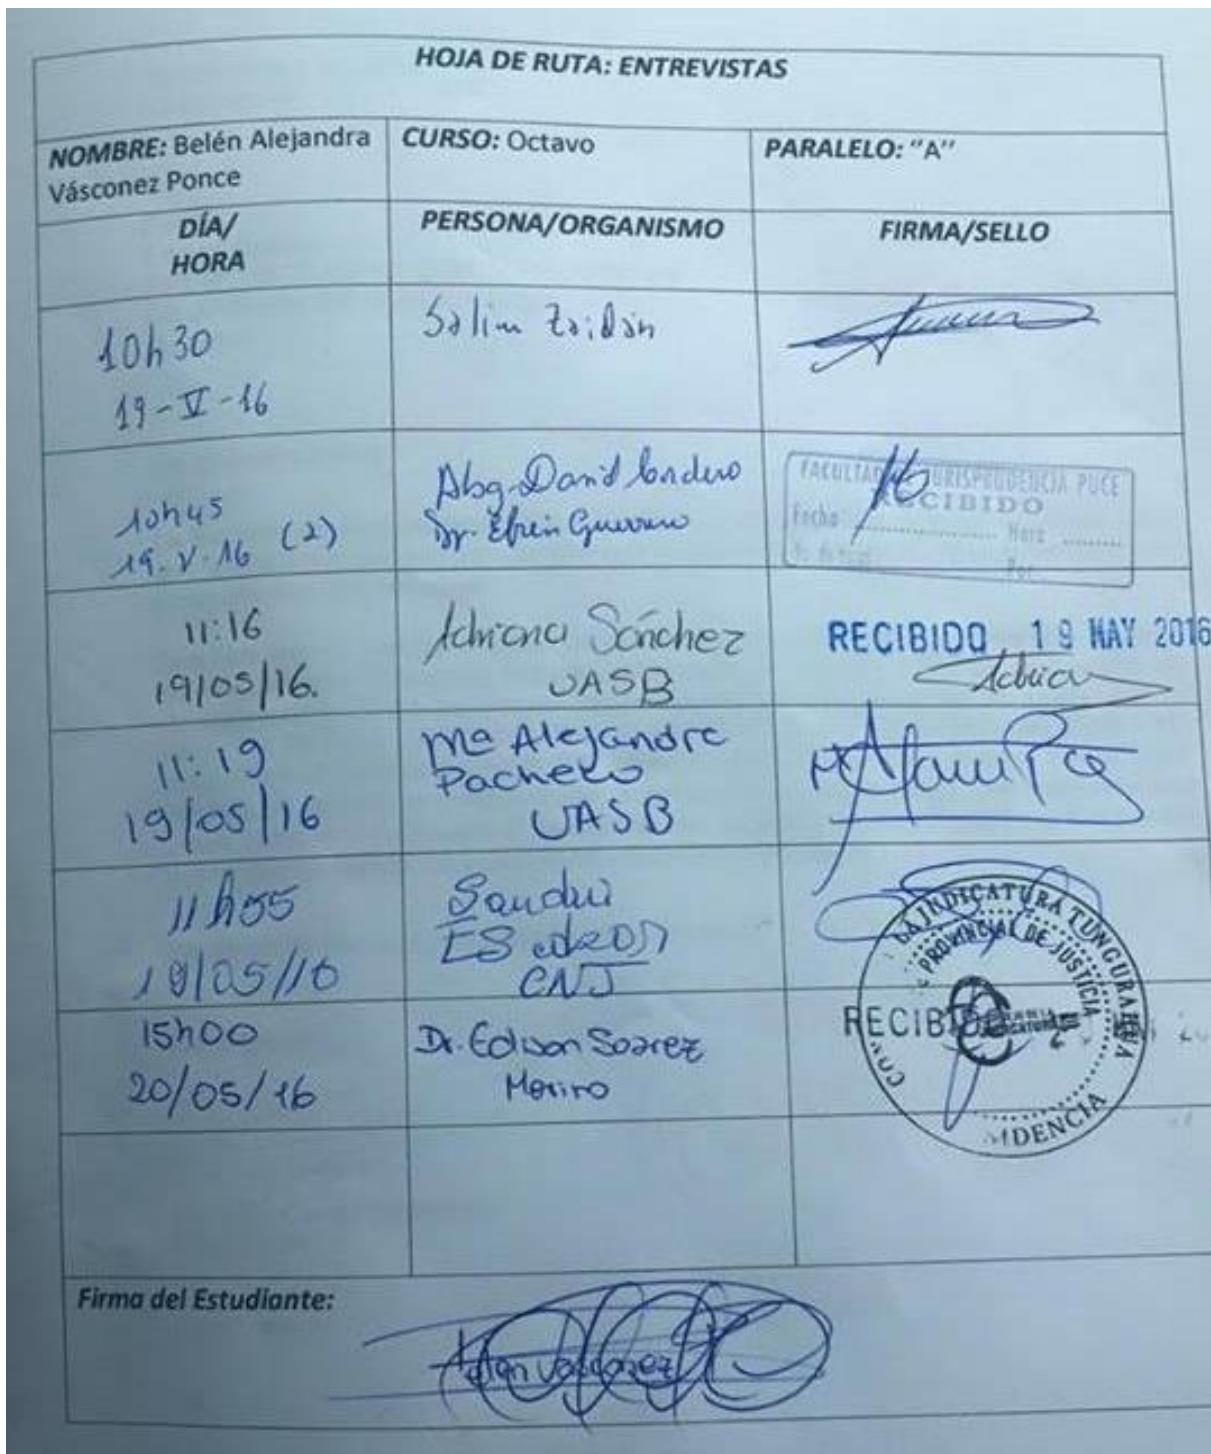 HOJA DE RUTA: ENTREVISTAS
NOMBRE: Belén Alejandra Vásconez Ponce
CURSO: Octavo
PARALELO: "A"
DÍA/
HORA
PERSONA/ORGANISMO
FIRMA/SELLO
10h30
19-V-16
Salim Zaidán
10h45
19.V.16 (2)
Abg. David Cordero
Dr. Efrén Guerrero
FACULTAD JURISPRUDENCIA PUCE
RECIBIDO
Fecha Hora
Por
11:16
19/05/16.
Adriana Sánchez
UASB
RECIBIDO 19 MAY 2016
Adrian
11:19
19/05/16
Mª Alejandra
Pacheco
UASB
11h55
19/05/16
CNJ
LA JUDICATURA TUNGURAHUA
PROVINCIAL DE JUSTICIA
15h00
20/05/16
Dr. Edison Soarez
Merino
RECIBIDO
Firma del Estudiante: